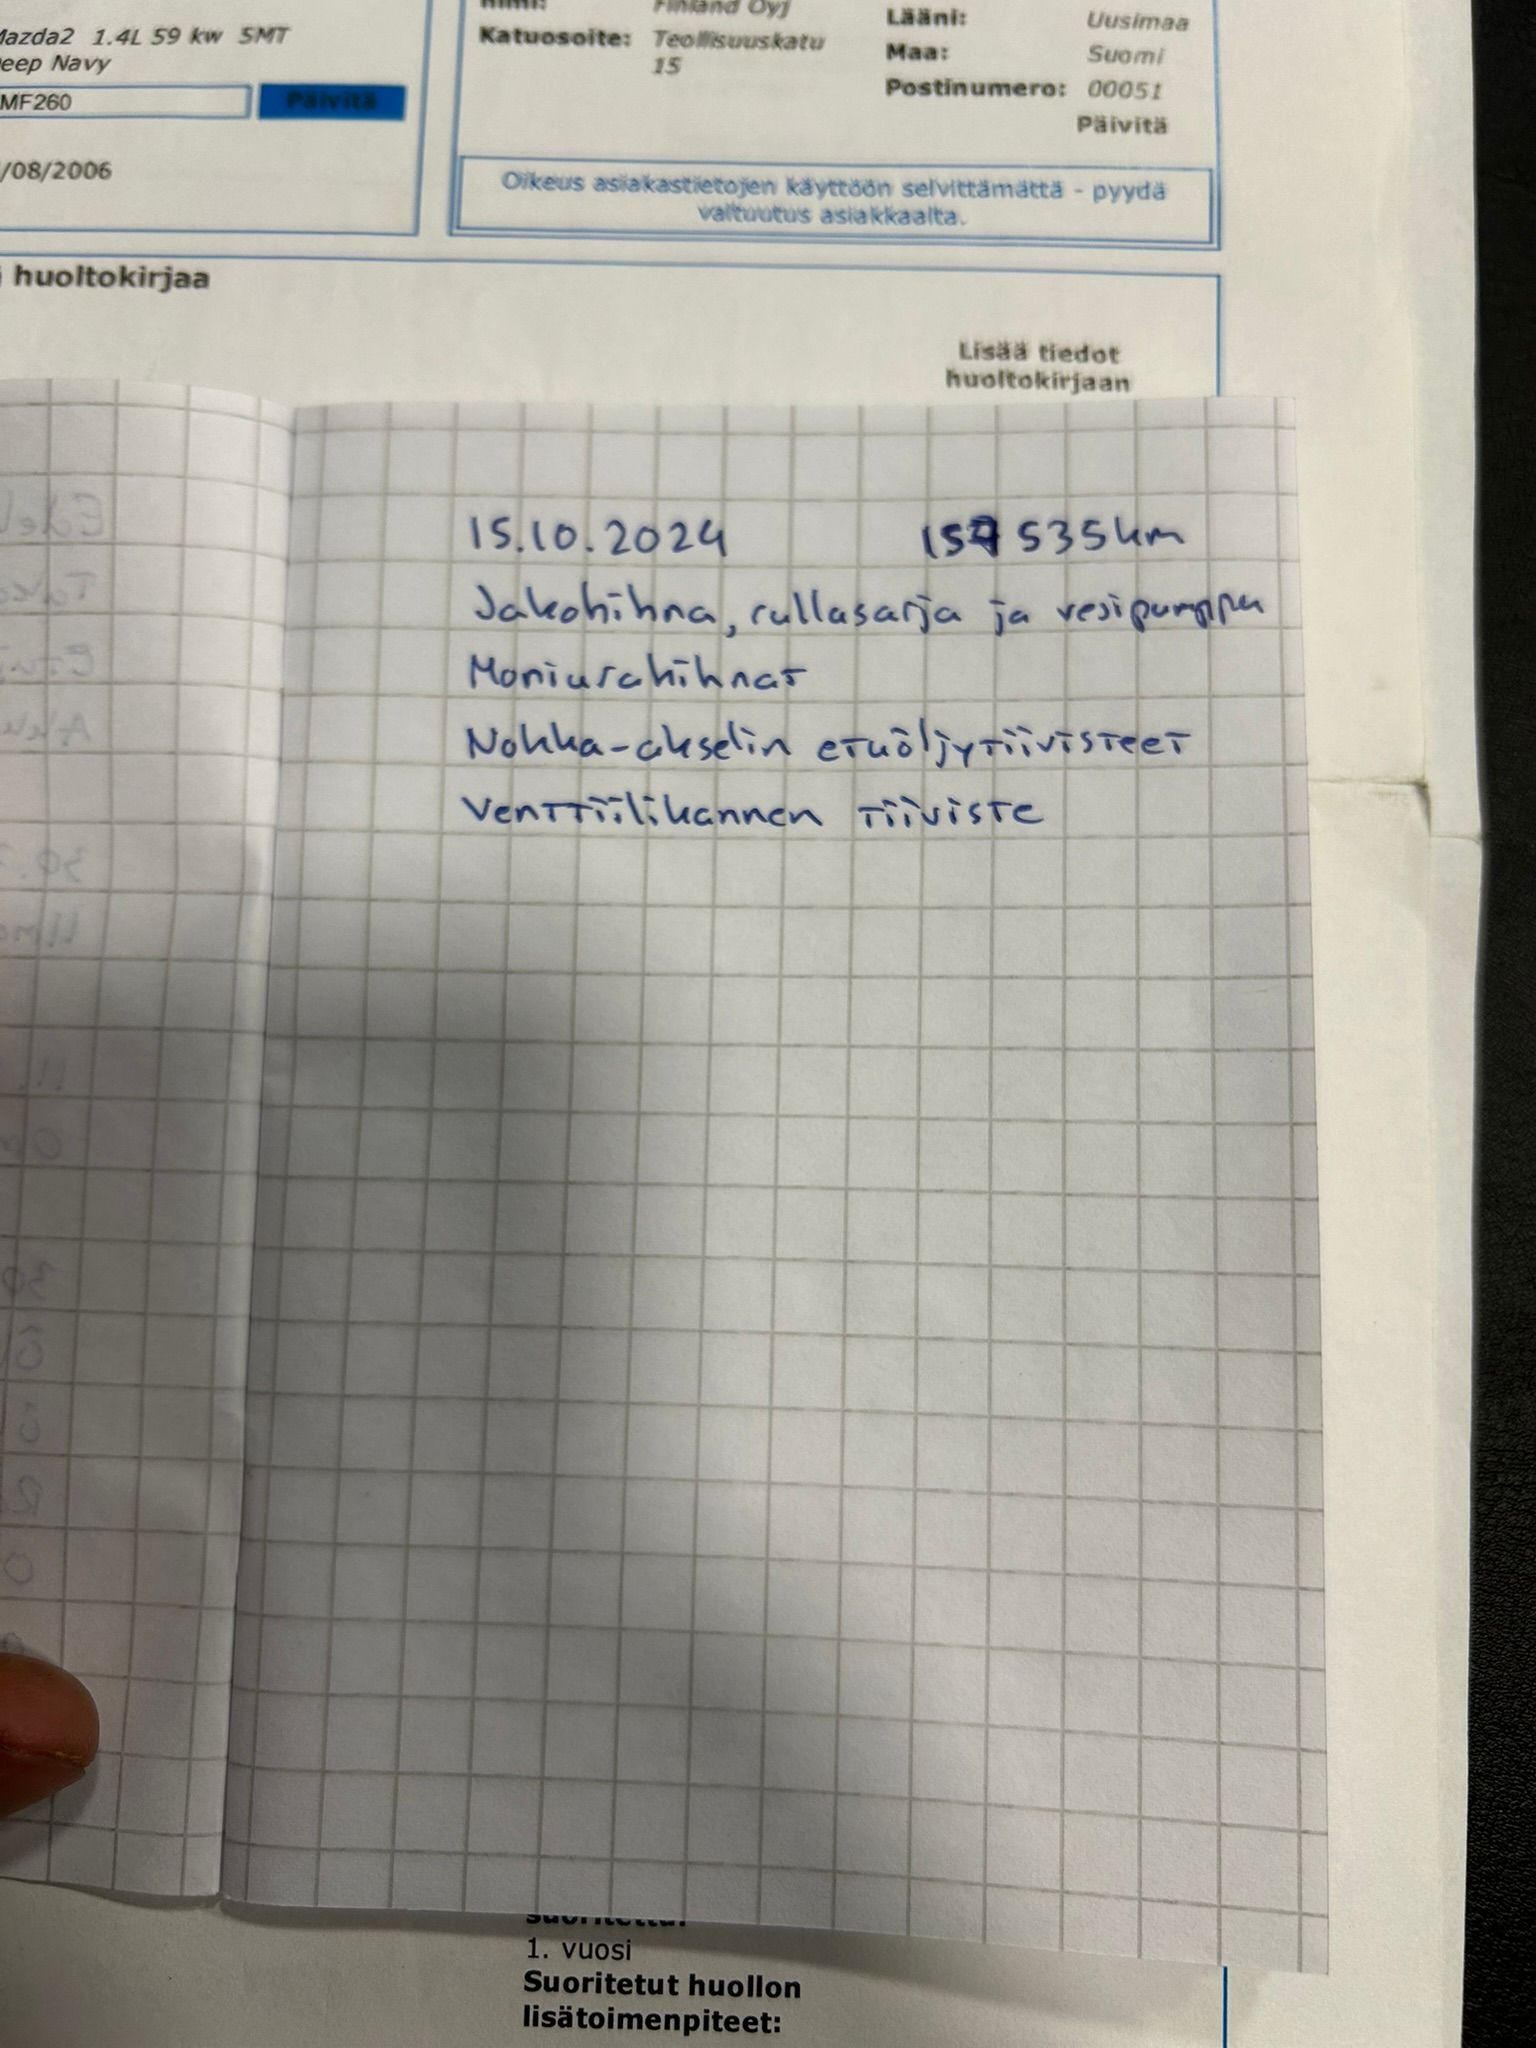 Finland Oyj
Lääni: Uusimaa
Mazda2 1.4L 59 kw 5MT
Katuosoite: Teollisuuskatu 15
Maa: Suomi
Deep Navy
Postinumero: 00051
MF260 Päivitä
Päivitä
/08/2006
Oikeus asiakastietojen käyttöön selvittämättä - pyydä
valtuutus asiakkaalta.
huoltokirjaa
Lisää tiedot
huoltokirjaan
15.10.2024 157 535km
Jakohihna, rullasarja ja vesipumppu
Moniurahihnat
Nokka-akselin etuöljytiivisteet
Venttiilikannen tiiviste
suoritettu:
1. vuosi
Suoritetut huollon
lisätoimenpiteet: